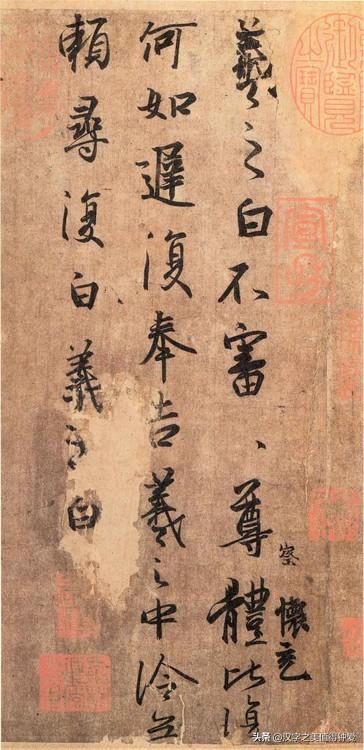 羲之白不審、尊體比復
察
懷充
何如遲復奉告羲之中冷無
賴尋復白羲之白
头条 @汉字之美值得钟爱